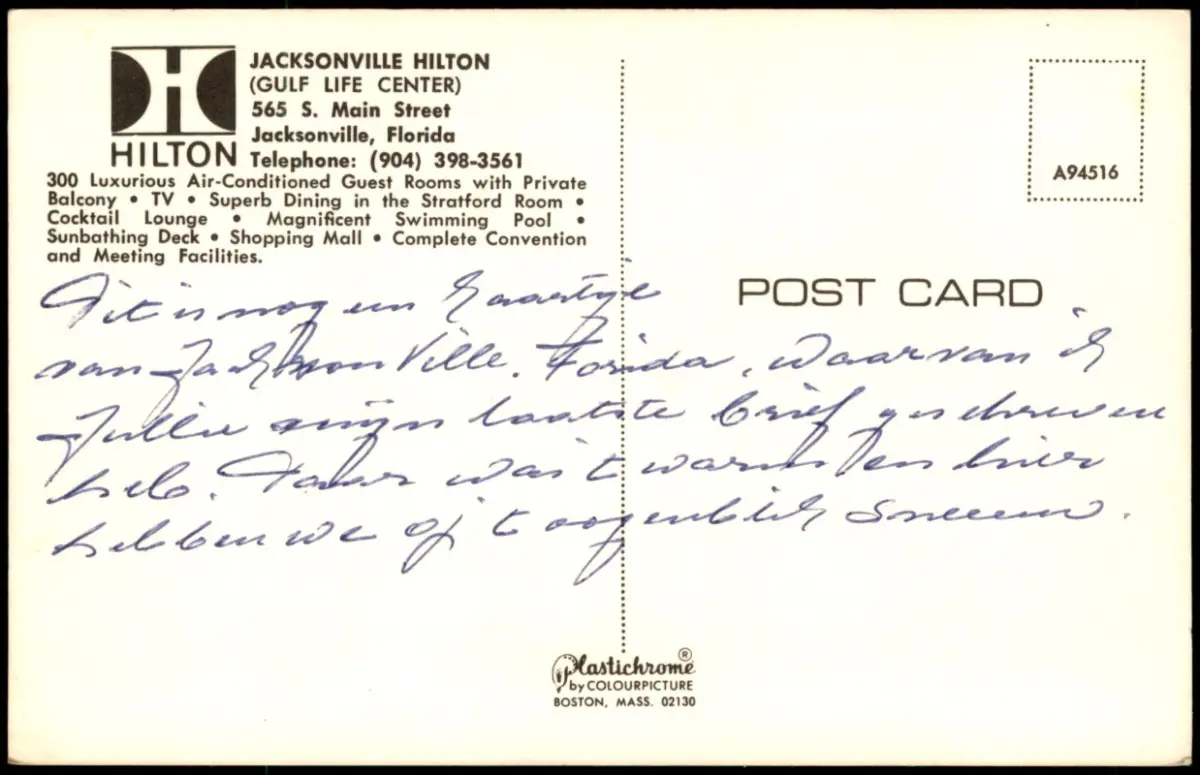 JACKSONVILLE HILTON
(GULF LIFE CENTER)
565 S. Main Street
Jacksonville, Florida
HILTON Telephone: (904) 398-3561
300 Luxurious Air-Conditioned Guest Rooms with Private
Balcony • TV • Superb Dining in the Stratford Room •
Cocktail Lounge • Magnificent Swimming Pool •
Sunbathing Deck • Shopping Mall • Complete Convention
and Meeting Facilities.
A94516
POST CARD
Dit is nog een kaartje
van Jacksonville. Florida, waarvan ik
Jullie mijn laatste brief geschreven
heb. Daar was 't warm en hier
hebben we op 't oogenblik sneeuw.
Plastichrome®
by COLOURPICTURE
BOSTON, MASS. 02130